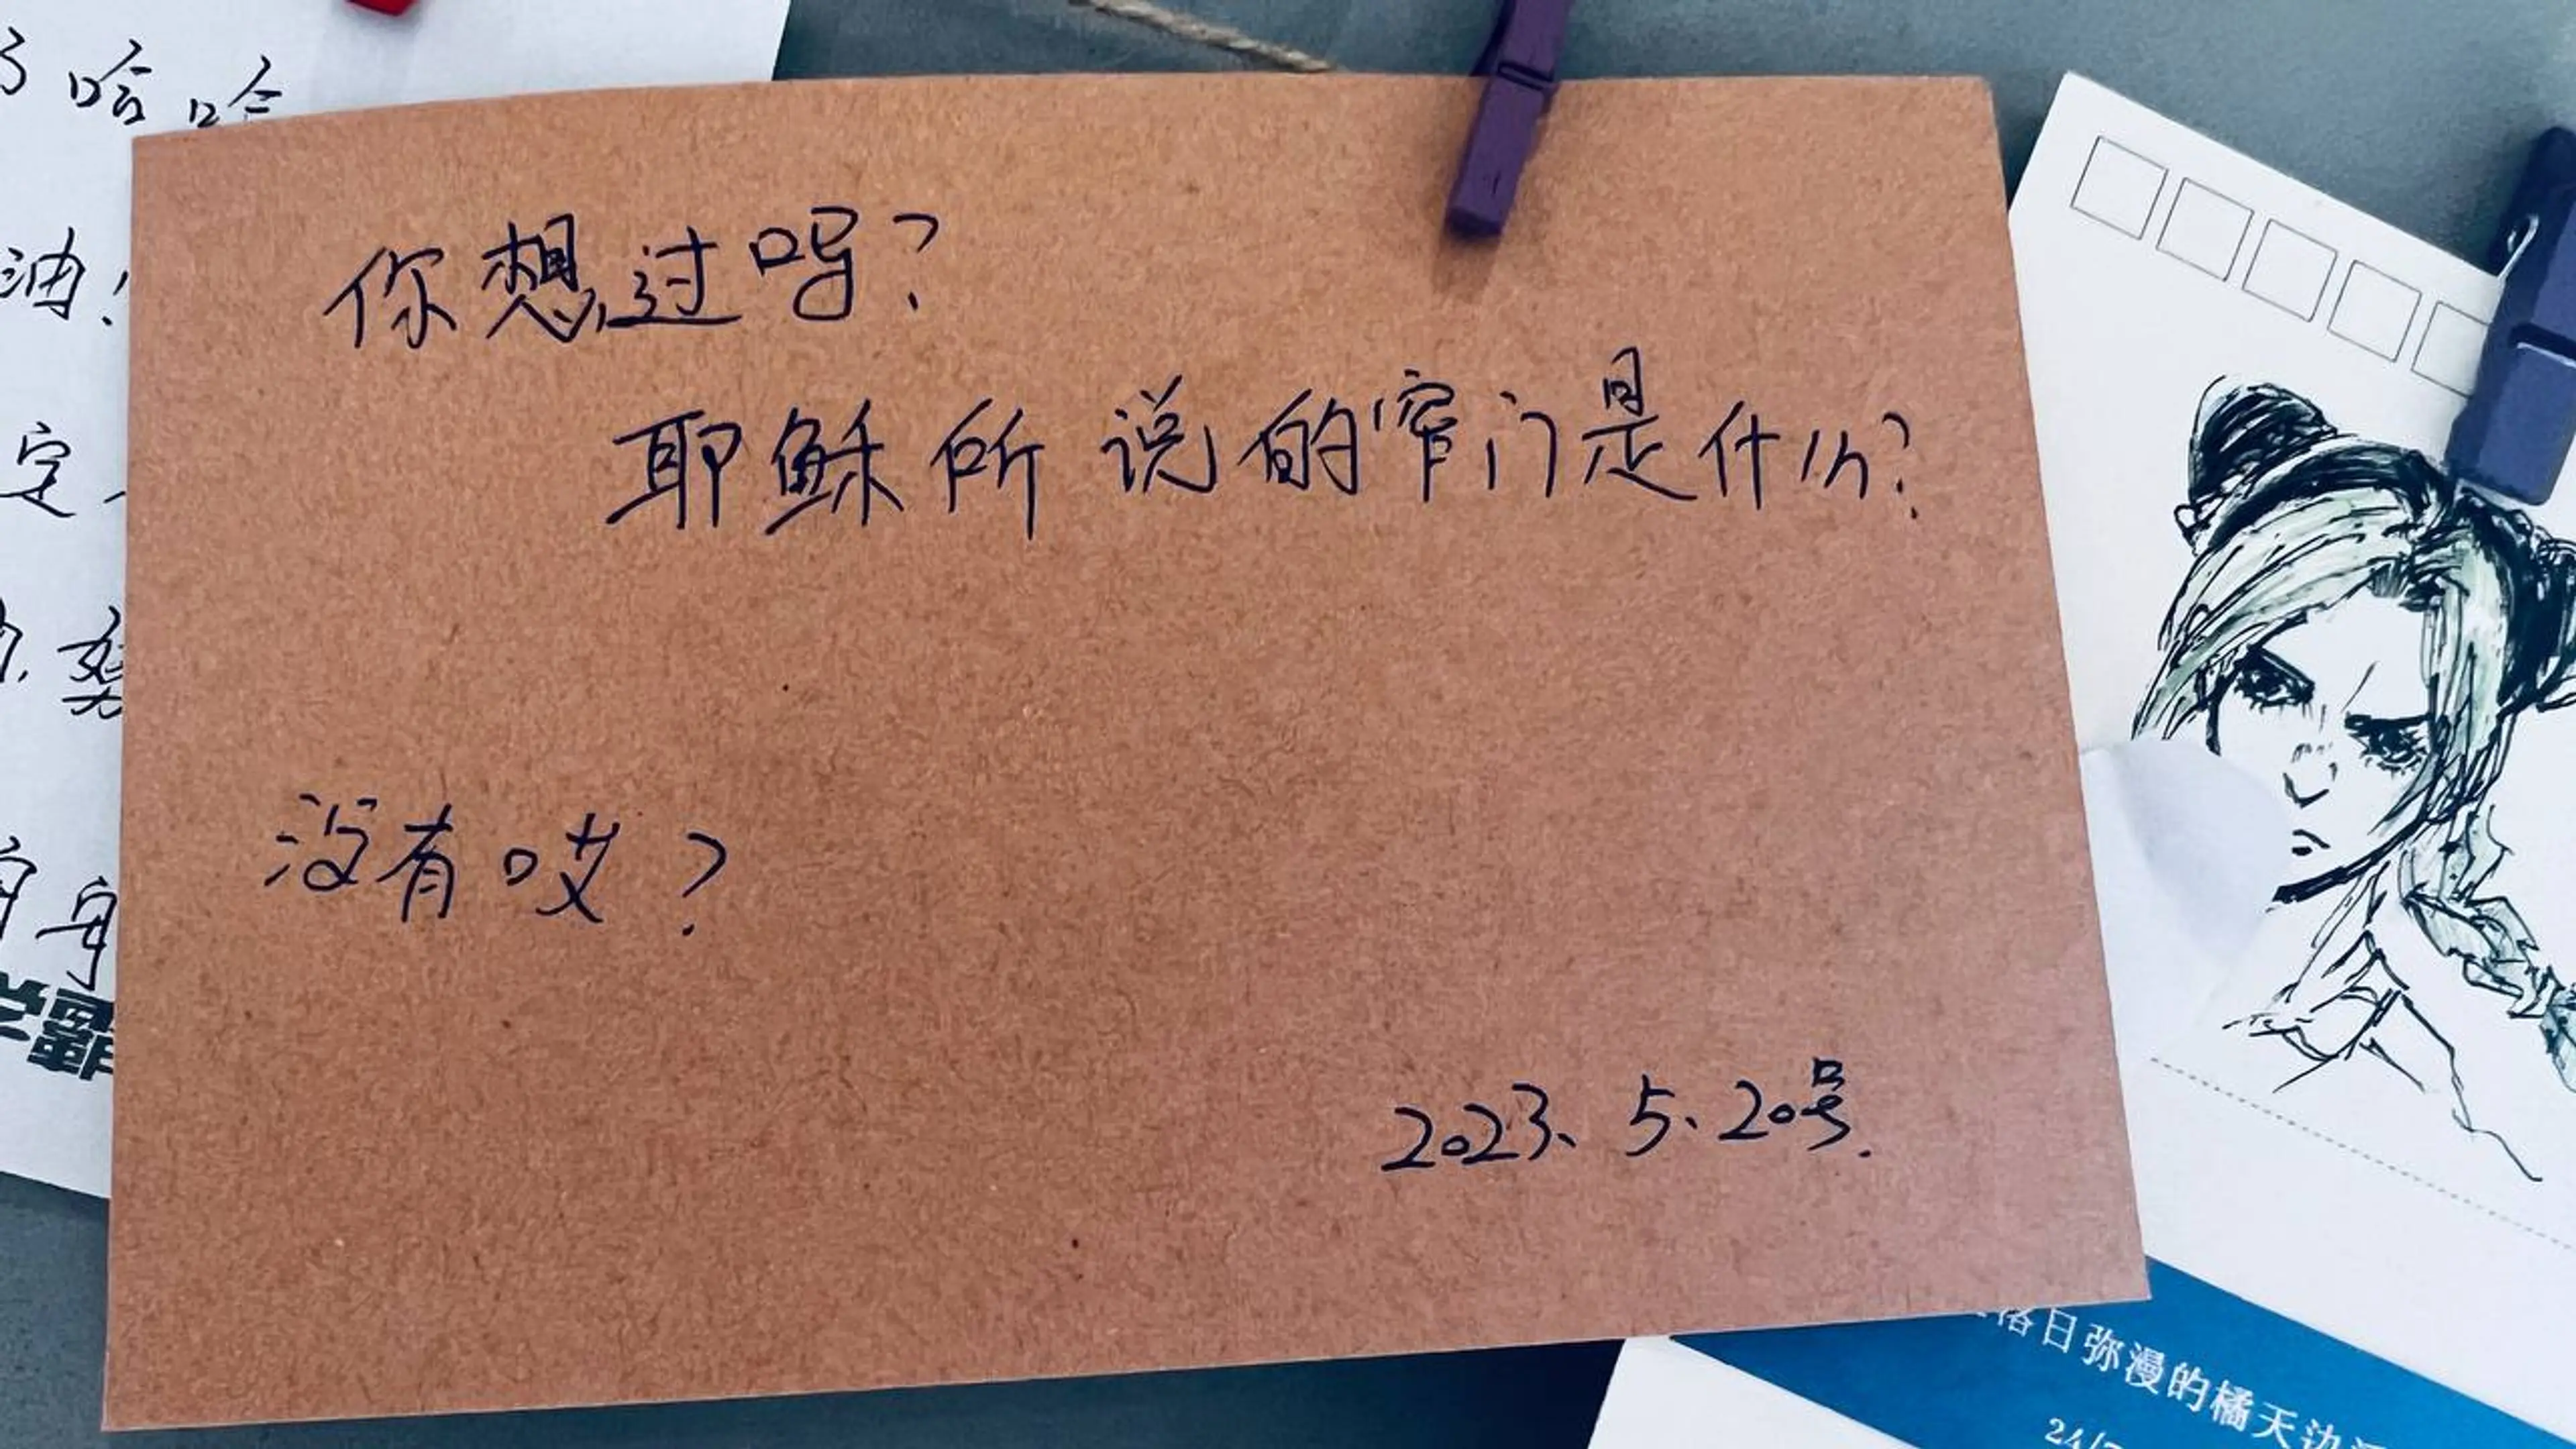 了哈哈
油！
定
努
你想过吗？
耶稣所说的窄门是什么？
没有哎？
2023、5、20号.
落日弥漫的橘天边
24/